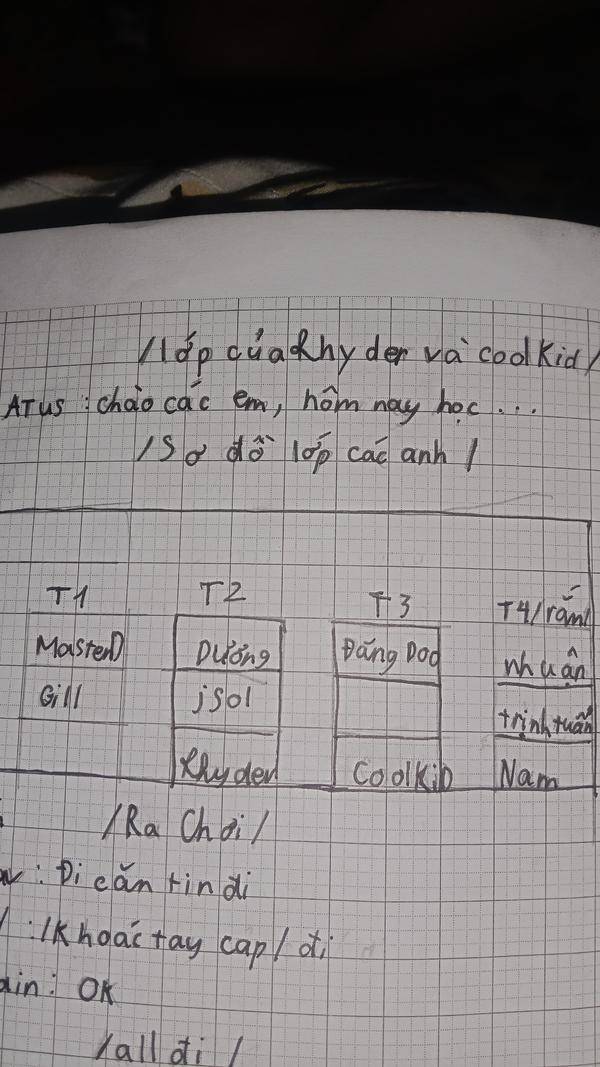 /lớp của Rhyder và coolKid/
ATUS : chào các em, hôm nay học ...
/Sơ đồ lớp các anh /
T1 T2 T3 T4/rắm/
MasterD Dương Đăng Doo nhuận
Gill jsol trịnh tuấn
Rhyder CoolKiD Nam
/Ra Chơi/
: Đi căn tin đi
: /Khoác tay cap/ đi
: OK
/all đi /